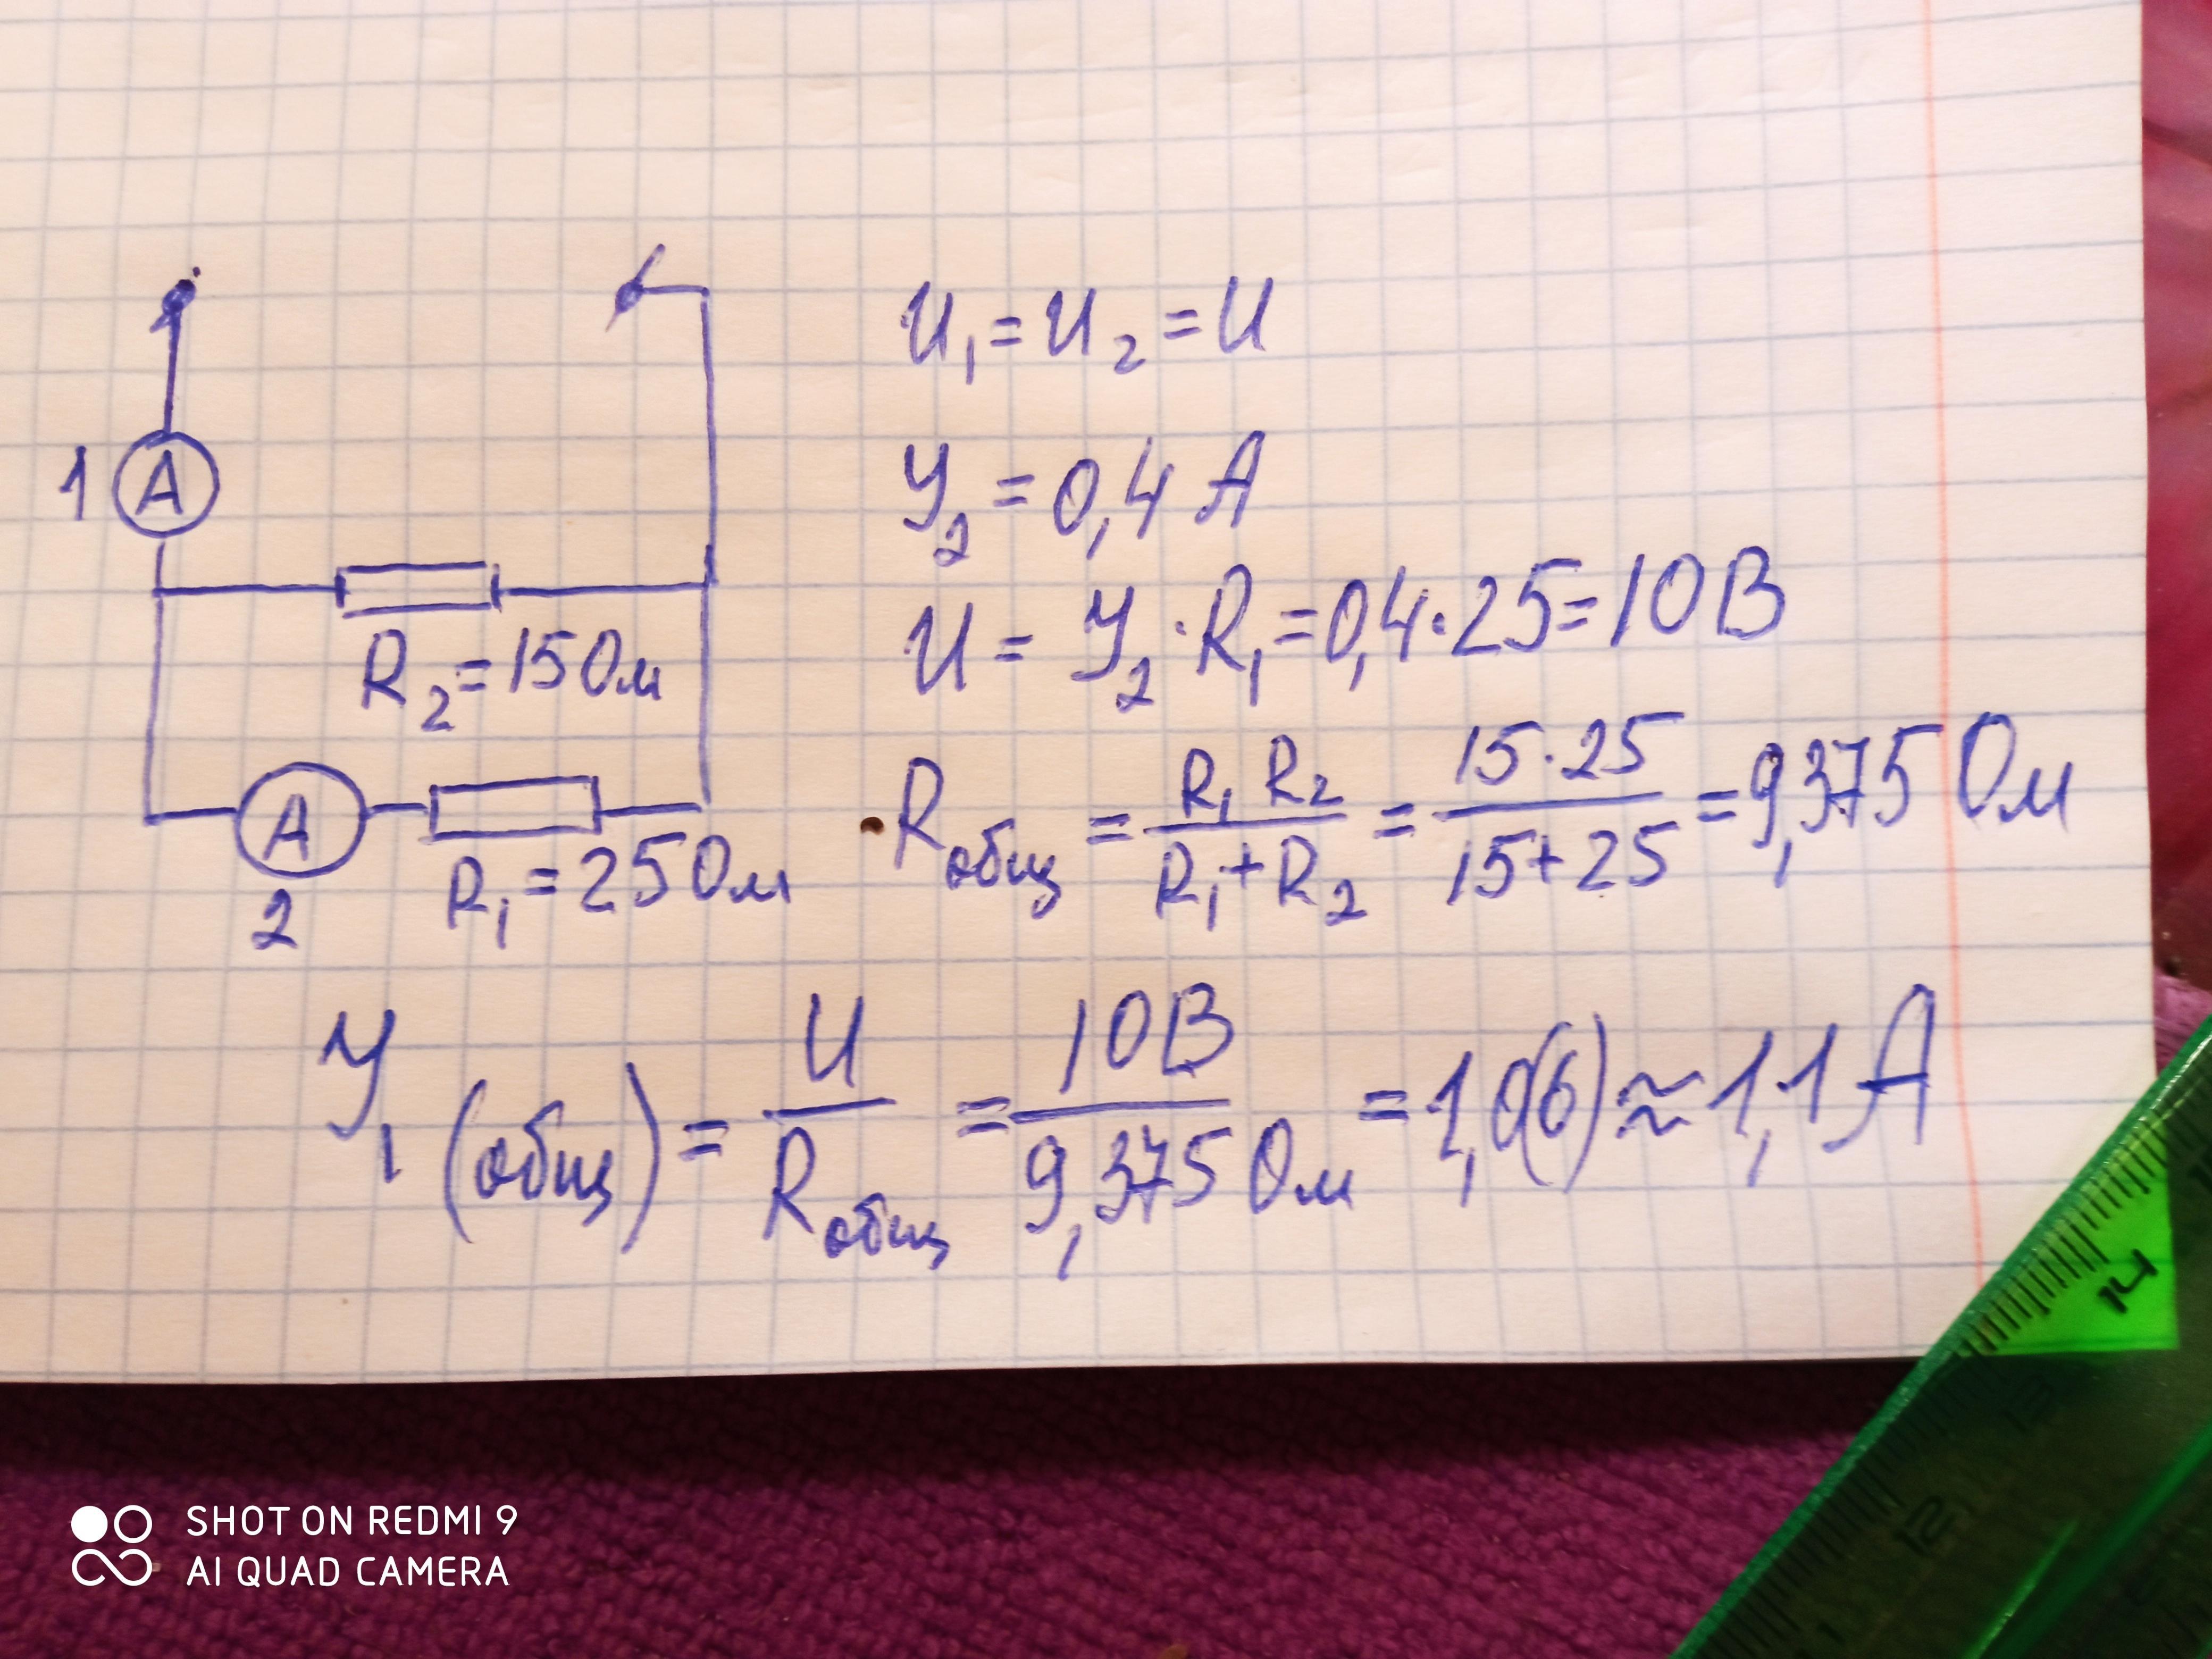 1 A
R₂ = 15 Ом
A
2
R₁ = 25 Ом
U₁ = U₂ = U
У₂ = 0,4 А
U = У₂ · R₁ = 0,4 · 25 = 10 В
R общ = R₁ R₂ / R₁ + R₂ = 15 · 25 / 15 + 25 = 9,375 Ом
У₁ (общ) = U / R общ = 10 В / 9,375 Ом = 1,0(6) ≈ 1,1 А
14
13
12
SHOT ON REDMI 9
AI QUAD CAMERA